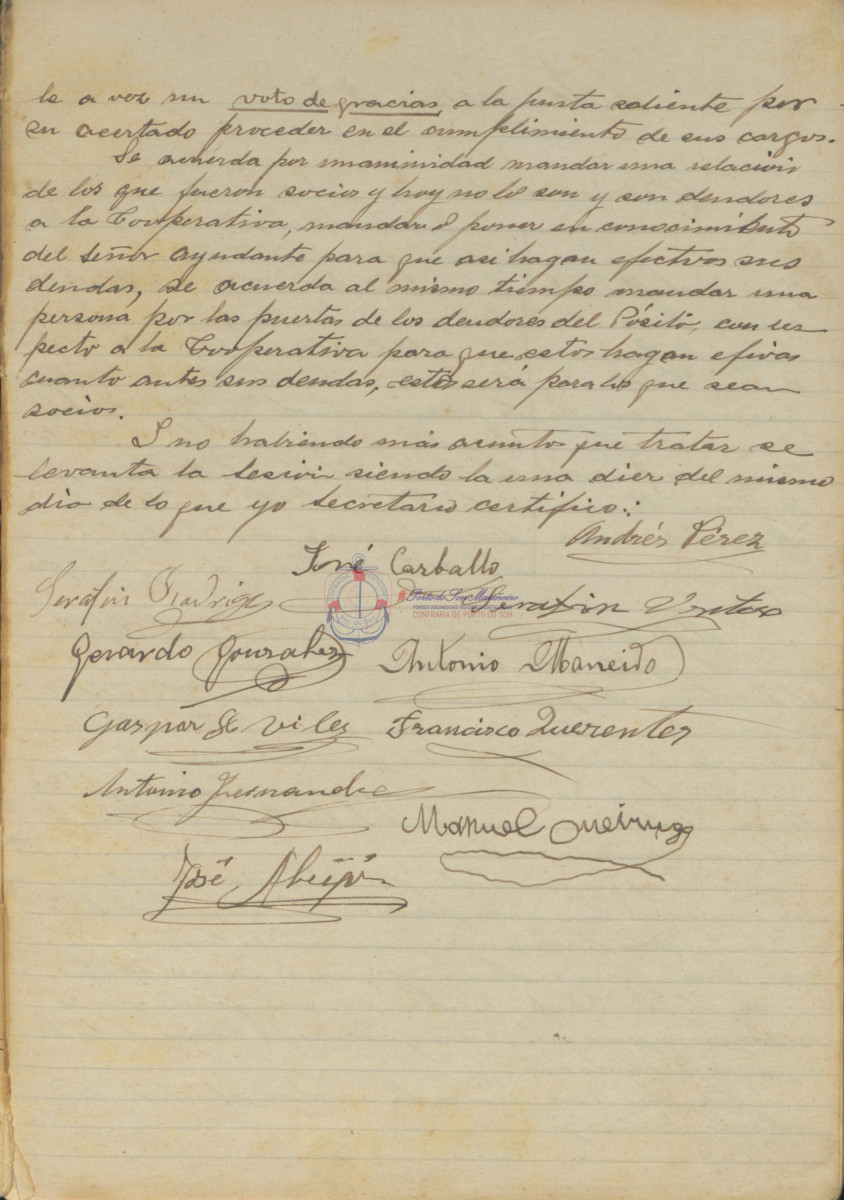 le a voz un voto de gracias, a la junta saliente por
su acertado proceder en el cumplimiento de sus cargos.
Se acuerda por unaminidad mandar una relación
de los que fueron socios y hoy no lo son y son deudores
a la Cooperativa, mandar o poner en conocimiento
del Señor ayudante para que asi hagan efectivos sus
deudas, se acuerda al mismo tiempo mandar una
persona por las puertas de los deudores del Pósito, con res
pecto a la Cooperativa para que estos hagan efivas
cuanto antes sus deudas, estos será para los que sean
socios.
I no habiendo más asunto que tratar se
levanta la sesión siendo la una dier del mismo
día de lo que yo Secretario certifico:
Andrés Pérez
José Carballo
Serafin
Porto do Son Mariñeiro
CONFRARÍA DE PORTO DO SON
Serafin Ventoso
Gerardo Gonzalez
Antonio Maneiro
Gaspar de Viles
Francisco Querentes
Antonio Fernandez
Manuel Queiruga
José